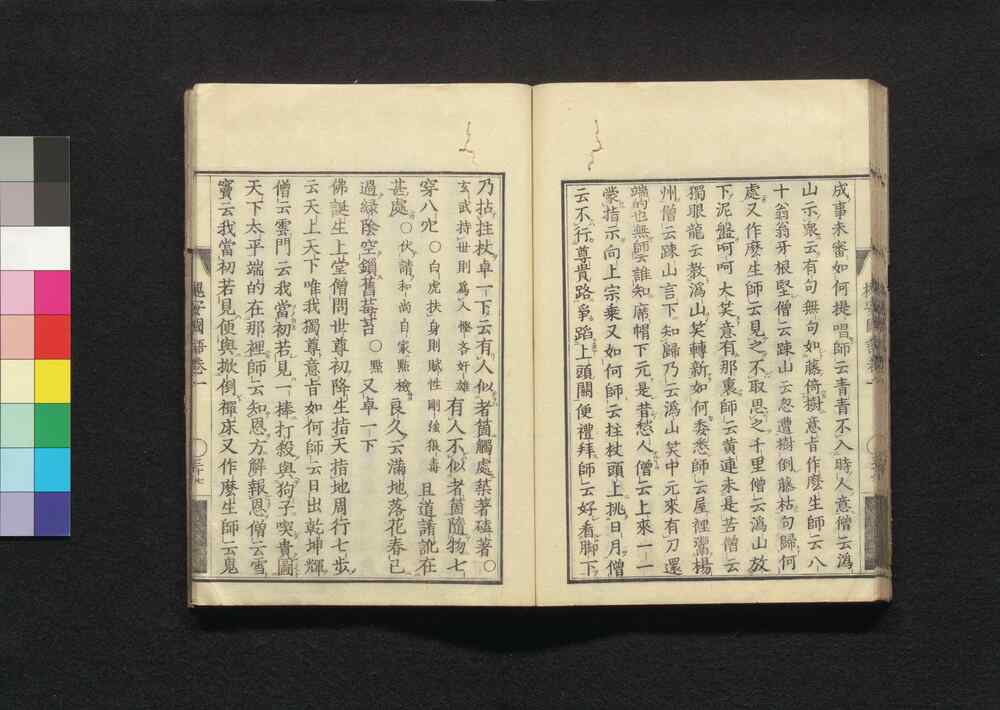 成事未審如何提唱師云青青不入時人意僧云潙
山示衆云有句無句如藤倚樹意旨作麼生師云八
十翁翁牙根堅僧云踈山云忽遭樹倒藤枯句歸何
處又作麼生師云見之不取思之千里僧云潙山放
下泥盤呵呵大笑意有那裏師云黄連未是苦僧云
獨眼龍云敎潙山笑轉新如何委悉師云屋裡鬻楊
州僧云踈山言下知歸乃云潙山笑中元來有刀還
端也無師云誰知席帽下元是昔愁人僧云上來一一
蒙指示向上宗乘又如何師云拄杖頭上挑日月僧
云不行尊貴路爭蹈上頭關便禮拜師云好看脚下
乃拈拄杖卓一下云有人似者箇觸處築著磕著○
玄武持世則爲人慳吝奸雄有人不似者箇隨物七
穿八穴○白虎扶身則賦性剛強狠毒且道誵訛在
甚處○伏請和尚自家點檢良久云滿地落花春已
過綠陰空鎖舊莓苔○點又卓一下
佛誕生上堂僧問世尊初降生指天指地周行七步
云天上天下唯我獨尊意旨如何師云日出乾坤輝
僧云雲門云我當初若見一棒打殺與狗子喫貴圖
天下太平端的在那裡師云知恩方解報恩僧云雪
竇云我當初若見便與掀倒禪床又作麼生師云鬼
槐安國語卷一